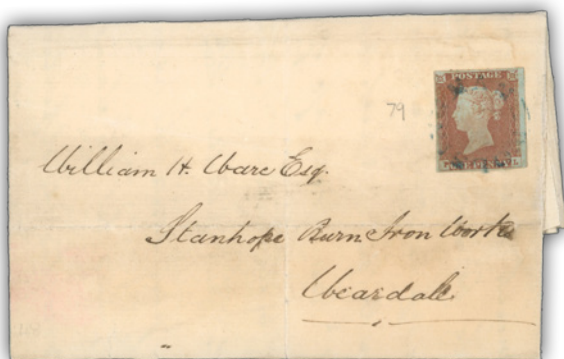 POSTAGE
79
William H. Ware Esq.
Stanhope Burn Iron Works
Weardale